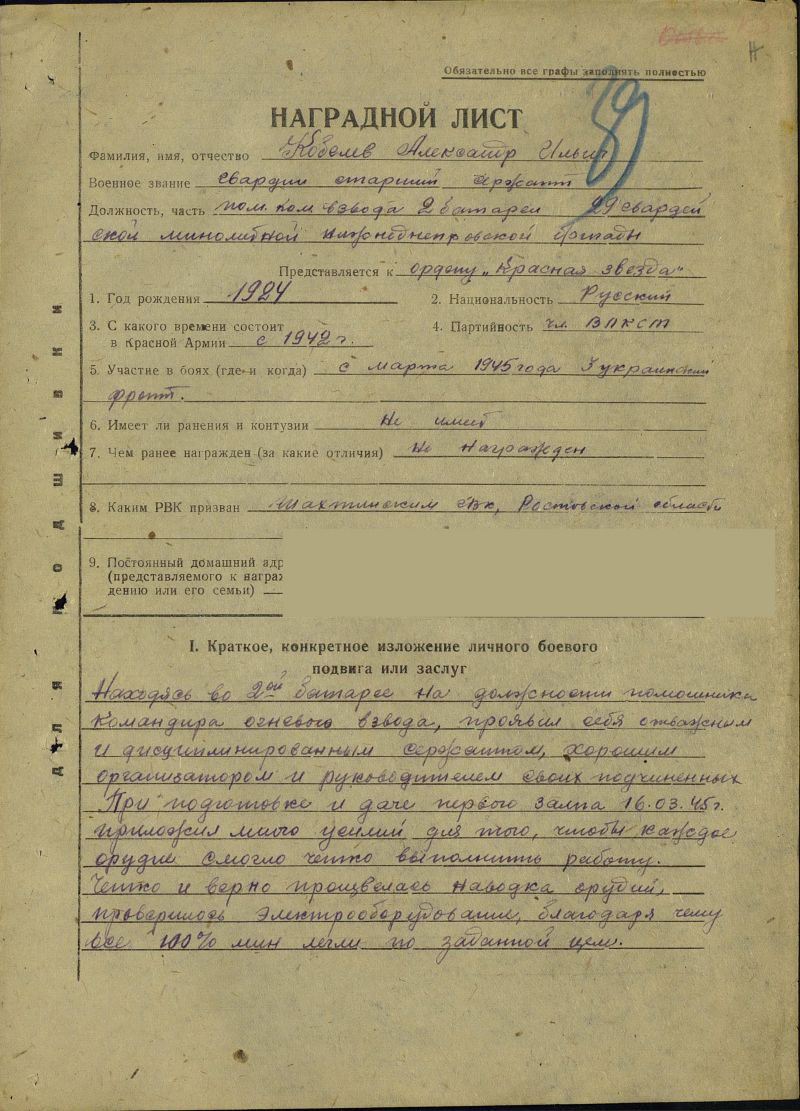 Обязательно все графы заполнять полностью
Н
39
НАГРАДНОЙ ЛИСТ
Фамилия, имя, отчество Кобелев Александр Ильич
Военное звание гвардии старший сержант
Должность, часть пом. ком. взвода 2 батареи 29 гвардей
ской минометной Нижнеднепровской бригады
Представляется к ордену „Красная звезда"
1. Год рождения 1924 2. Национальность Русский
3. С какого времени состоит
в Красной Армии с 1942 г. 4. Партийность чл. ВЛКСМ
5. Участие в боях (где и когда) с марта 1945 года 3 украинский
фронт.
6. Имеет ли ранения и контузии Не имеет
7. Чем ранее награжден (за какие отличия) Не награжден
8. Каким РВК призван Шахтинским РВК, Ростовской области
9. Постоянный домашний адр
(представляемого к награж
дению или его семьи)
Для подшивки
I. Краткое, конкретное изложение личного боевого
подвига или заслуг
Находясь во 2ой батарее на должности помошника
командира огневого взвода, проявил себя отважным
и дисциплинированным сержантом, хорошим
организатором и руководителем своих подчиненных
При подготовке и даче первого залпа 16.03.45г.
приложил много усилий для того, чтобы каждое
орудие смогло четко выполнить работу.
Четко и верно произвелась наводка орудий,
проверилось электрооборудование, благодаря чему
все 100% мин легли по заданной цели.